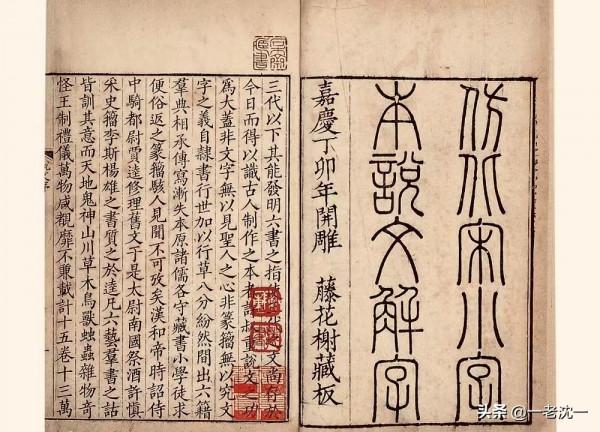 仿北宋小字
本說文解字
嘉慶丁卯年開雕 藤花榭藏板
三代以下其能發明六書之指使文尚存於
今日而得以識古人制作之本者許叔重說文之功
爲大蓋非文字無以見聖人之心非篆籀無以究文
字之義自隸書行世加以行草八分紛然間出六籍
羣典相承傳寫漸失本原諸儒各守藏書小學徒求
便俗返之篆籀駭人見聞不可攷矣漢和帝時詔侍
中騎都尉賈逵修理舊文于是太尉南國祭酒許慎
采史籀李斯楊雄之書質之於逵凡六藝羣書之詁
皆訓其意而天地鬼神山川草木鳥獸蟲雜物奇
怪王制禮儀萬物咸覩靡不兼載計十五卷十三萬
头条 @一老沈一